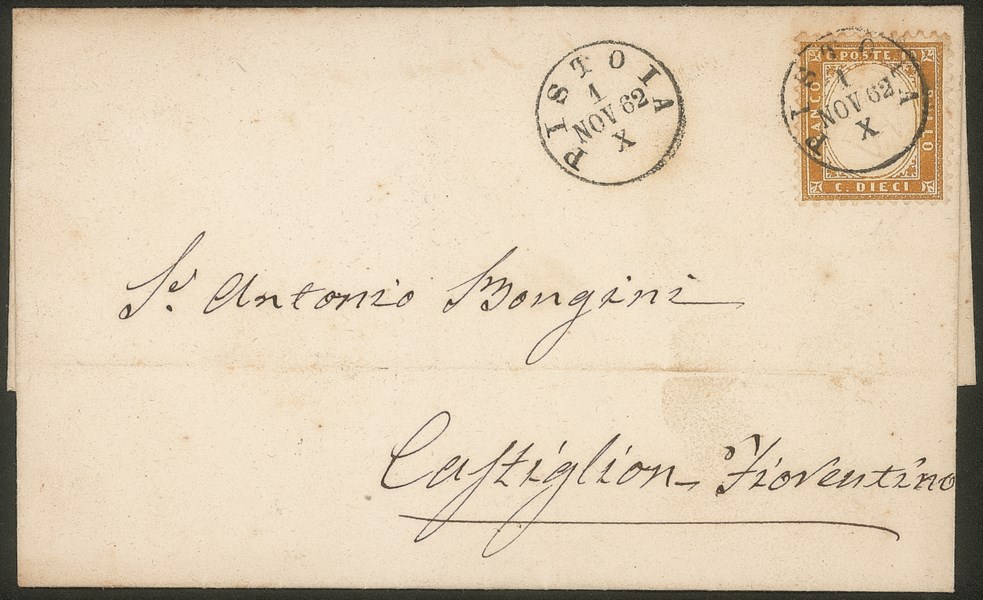 PISTOIA
1
NOV 62
X
POSTE
FRANCO
BOLLO
C. DIECI
PISTOIA
1
NOV 62
X
Sr. Antonio Bongini
Castiglion Fiorentino